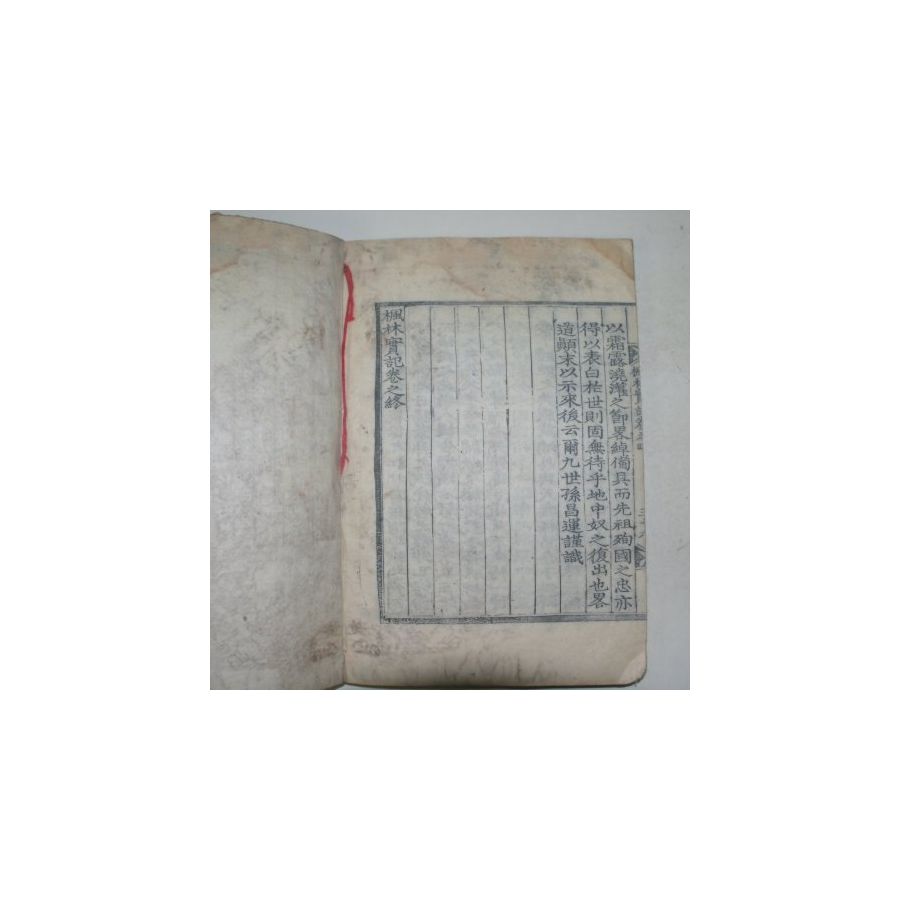 以霜露澆灘之節畧綽備具而先祖殉國之忠亦
得以表白於世則固無待乎地中奴之復出也畧
道顚末以示來後云爾九世孫昌運謹識
楓林實記卷之終